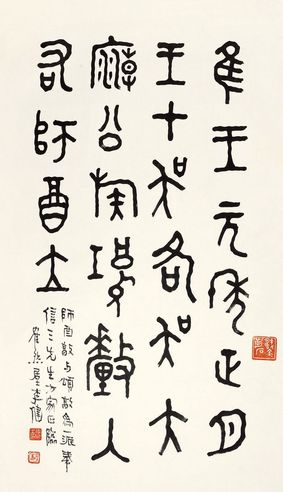 隹王元年正月
王才吳各吳大
廟公族鴻釐入
右師酉立
師酉敦与頌敦為一派筆
信三先生方家正臨
李健